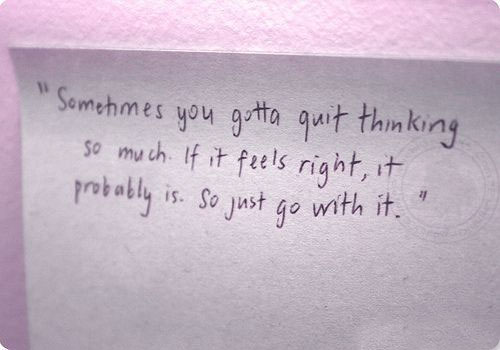 "Sometimes you gotta quit thinking
so much. If it feels right, it
probably is. So just go with it."